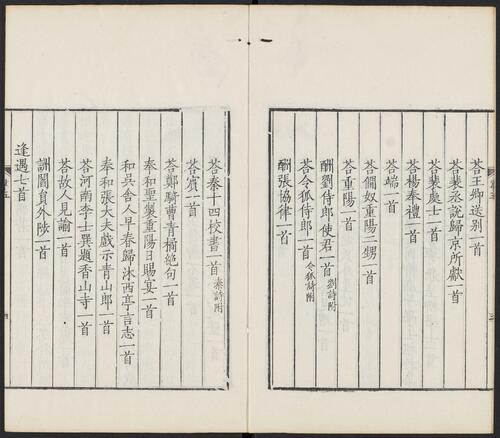 荅王卿送别一首
荅裴丞說歸京所獻一首
荅裴處士一首
荅楊奉禮一首
荅端一首
荅僴奴重陽二甥一首
荅重陽一首
酬劉侍郎使君一首 劉詩附
荅令狐侍郎一首 令狐詩附
酬張協律一首
三
荅秦十四校書一首 秦詩附
荅賓一首
荅鄭騎曹青橘絶句一首
奉和聖製重陽日賜宴一首
和吳舍人早春歸沐西亭言志一首
奉和張大夫戲示青山郎一首
荅河南李士巽題香山寺一首
荅故人見諭一首
詶閻員外陟一首
逢遇七首
四